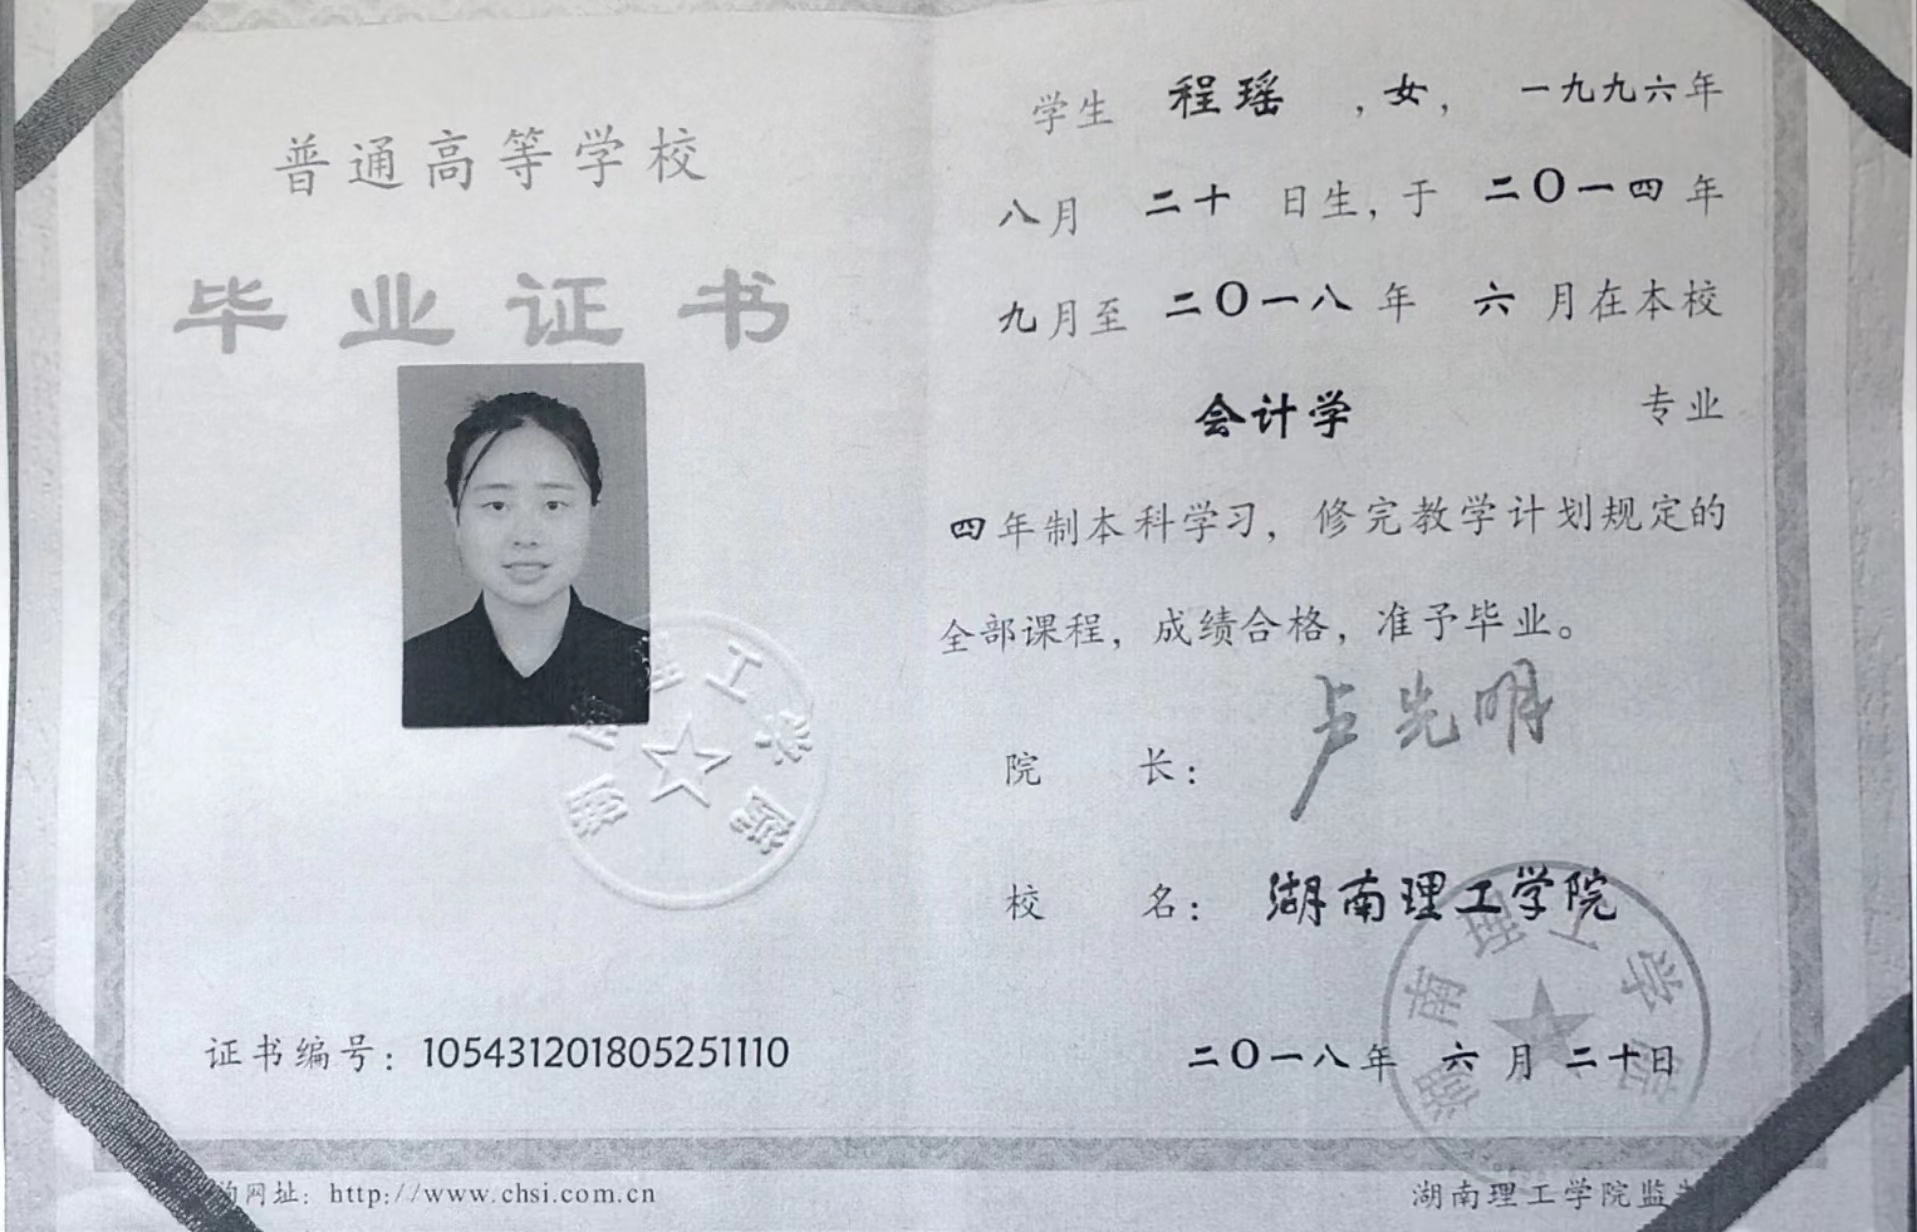 普通高等学校
毕业证书
湖南理工学院
证书编号：105431201805251110
网址：http://www.chsi.com.cn
学生 程瑶，女，一九九六年
八月 二十 日生，于 二〇一四 年
九月至 二〇一八 年 六 月在本校
会计学 专业
四年制本科学习，修完教学计划规定的
全部课程，成绩合格，准予毕业。
院 长：卢先明
校 名：湖南理工学院
二〇一八年 六 月 二十日
湖南理工学院
湖南理工学院监